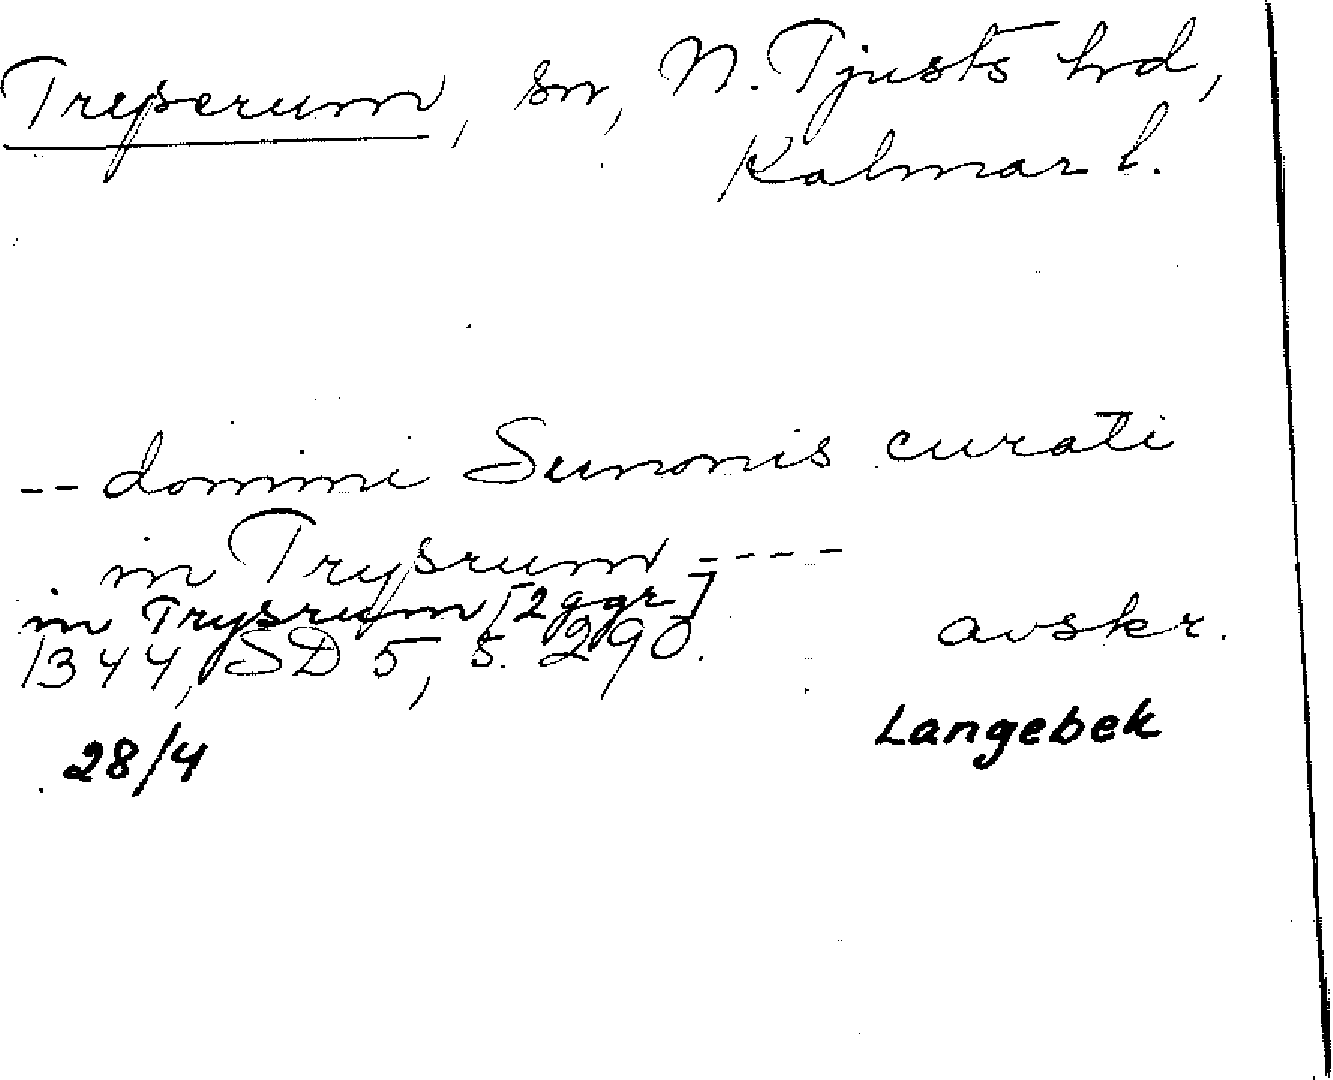 Tryserum, sn, N. Tjusts hd,
Kalmar l.
-- domini Sunonis curati
in Trysrum ----
in Trysrum [2 ggr]
1344, SD 5, s. 290. avskr.
28/4 Langebek